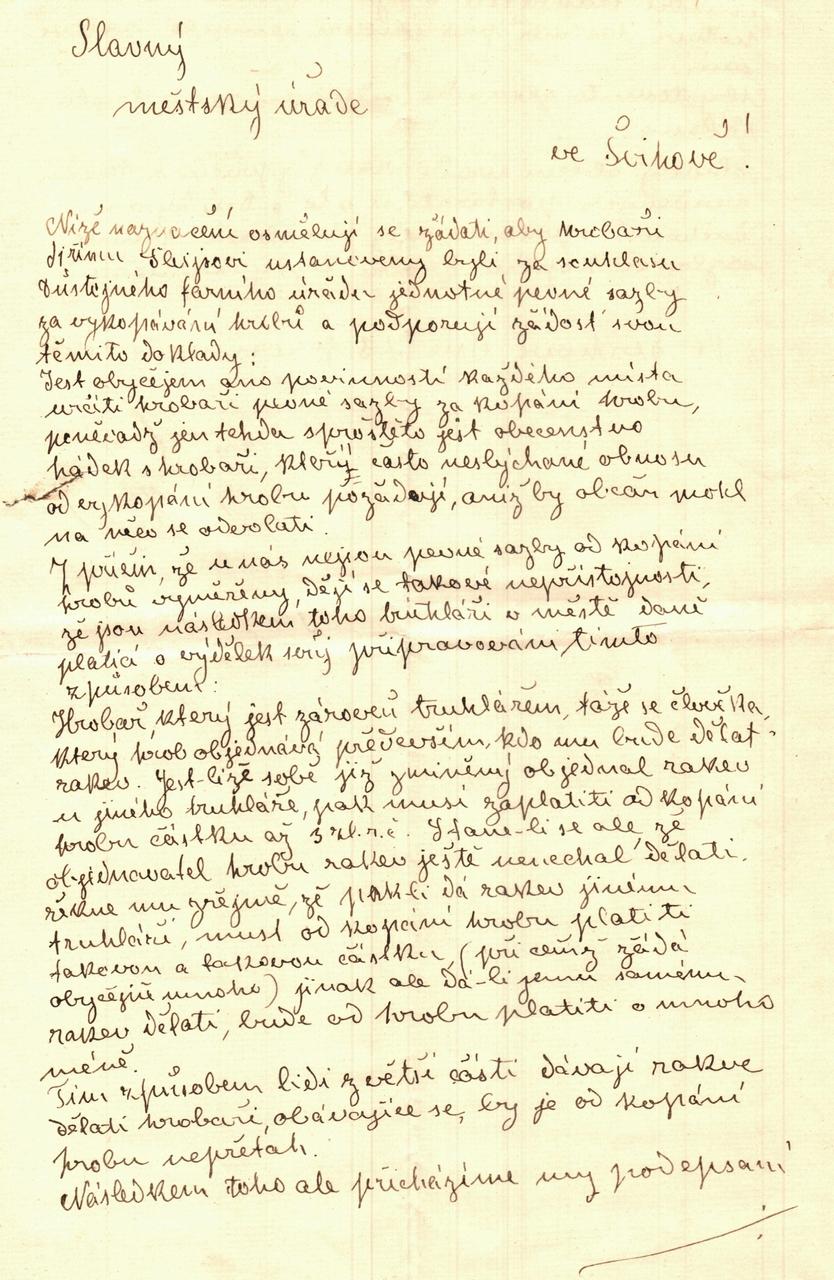 Slavný
městský úřade
ve Švihově!
Níže naznačení osmělují se žádati, aby hrobaři
Jiřímu ustanoveny byli za souhlasu
Důstojného farního úřadu jednotné pevné sazby
za vykopávání hrobů a podporují žádost svou
těmito doklady:
Jest obyčejem ano povinností každého místa
určiti hrobaři pevné sazby za kopání hrobu,
poněvadž jen tehdy sproštěto jest obecenstvo
hádek s hrobaři, který často neslýchané obnosu
od vykopání hrobu požadují, aniž by občan mohl
na něco se odvolati.
Z příčin, že u nás nejsou pevné sazby od kopání
hrobů vyměřeny, dějí se takové nepřístojnosti,
že jsou následkem toho truhláři v městě daně
platící o výdělek svůj připravováni tímto
způsobem:
Hrobař, který jest zároveň truhlářem, táže se člověka,
který hrob objednává především, kdo mu bude dělat
rakev. Jest-liže sobě již zmíněný objednal rakev
u jiného truhláře, pak musí zaplatiti od kopání
hrobu částku až 3 zl. r. č. Stane-li se ale, že
objednavatel hrobu rakev ještě nenechal dělati,
řekne mu zřejmě, že pakli dá rakev jinému
truhláři, musí od kopání hrobu platiti
takovou a takovou částku, (při čemž žádá
obyčejně mnoho) jinak ale dá-li jemu samému
rakev dělati, bude od hrobu platiti o mnoho
méně.
Tím způsobem lidi z větší části dávají rakve
dělati hrobaři, obávajíce se, by je od kopání
hrobu nepřetah.
Následkem toho ale přicházíme my podepsaní